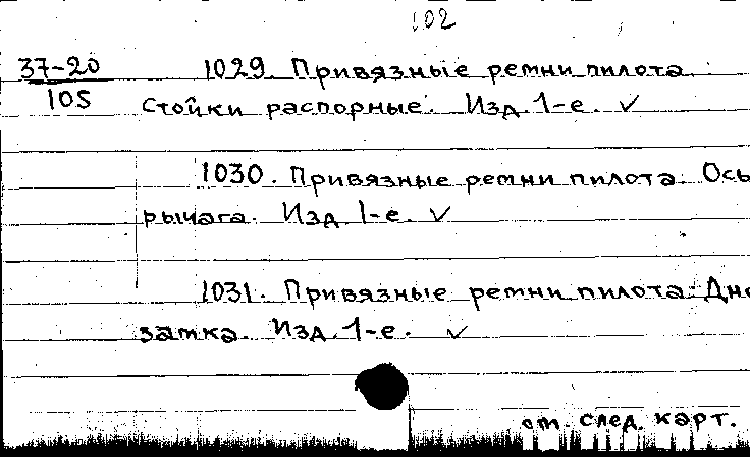 102
37-20 1029. Привязные ремни пилота.
105 Стойки распорные. Изд. 1-е. ✓
1030. Привязные ремни пилота. Ось
рычага. Изд. 1-е. ✓
1031. Привязные ремни пилота. Дно
затка. Изд. 1-е. ✓
от. след. карт.